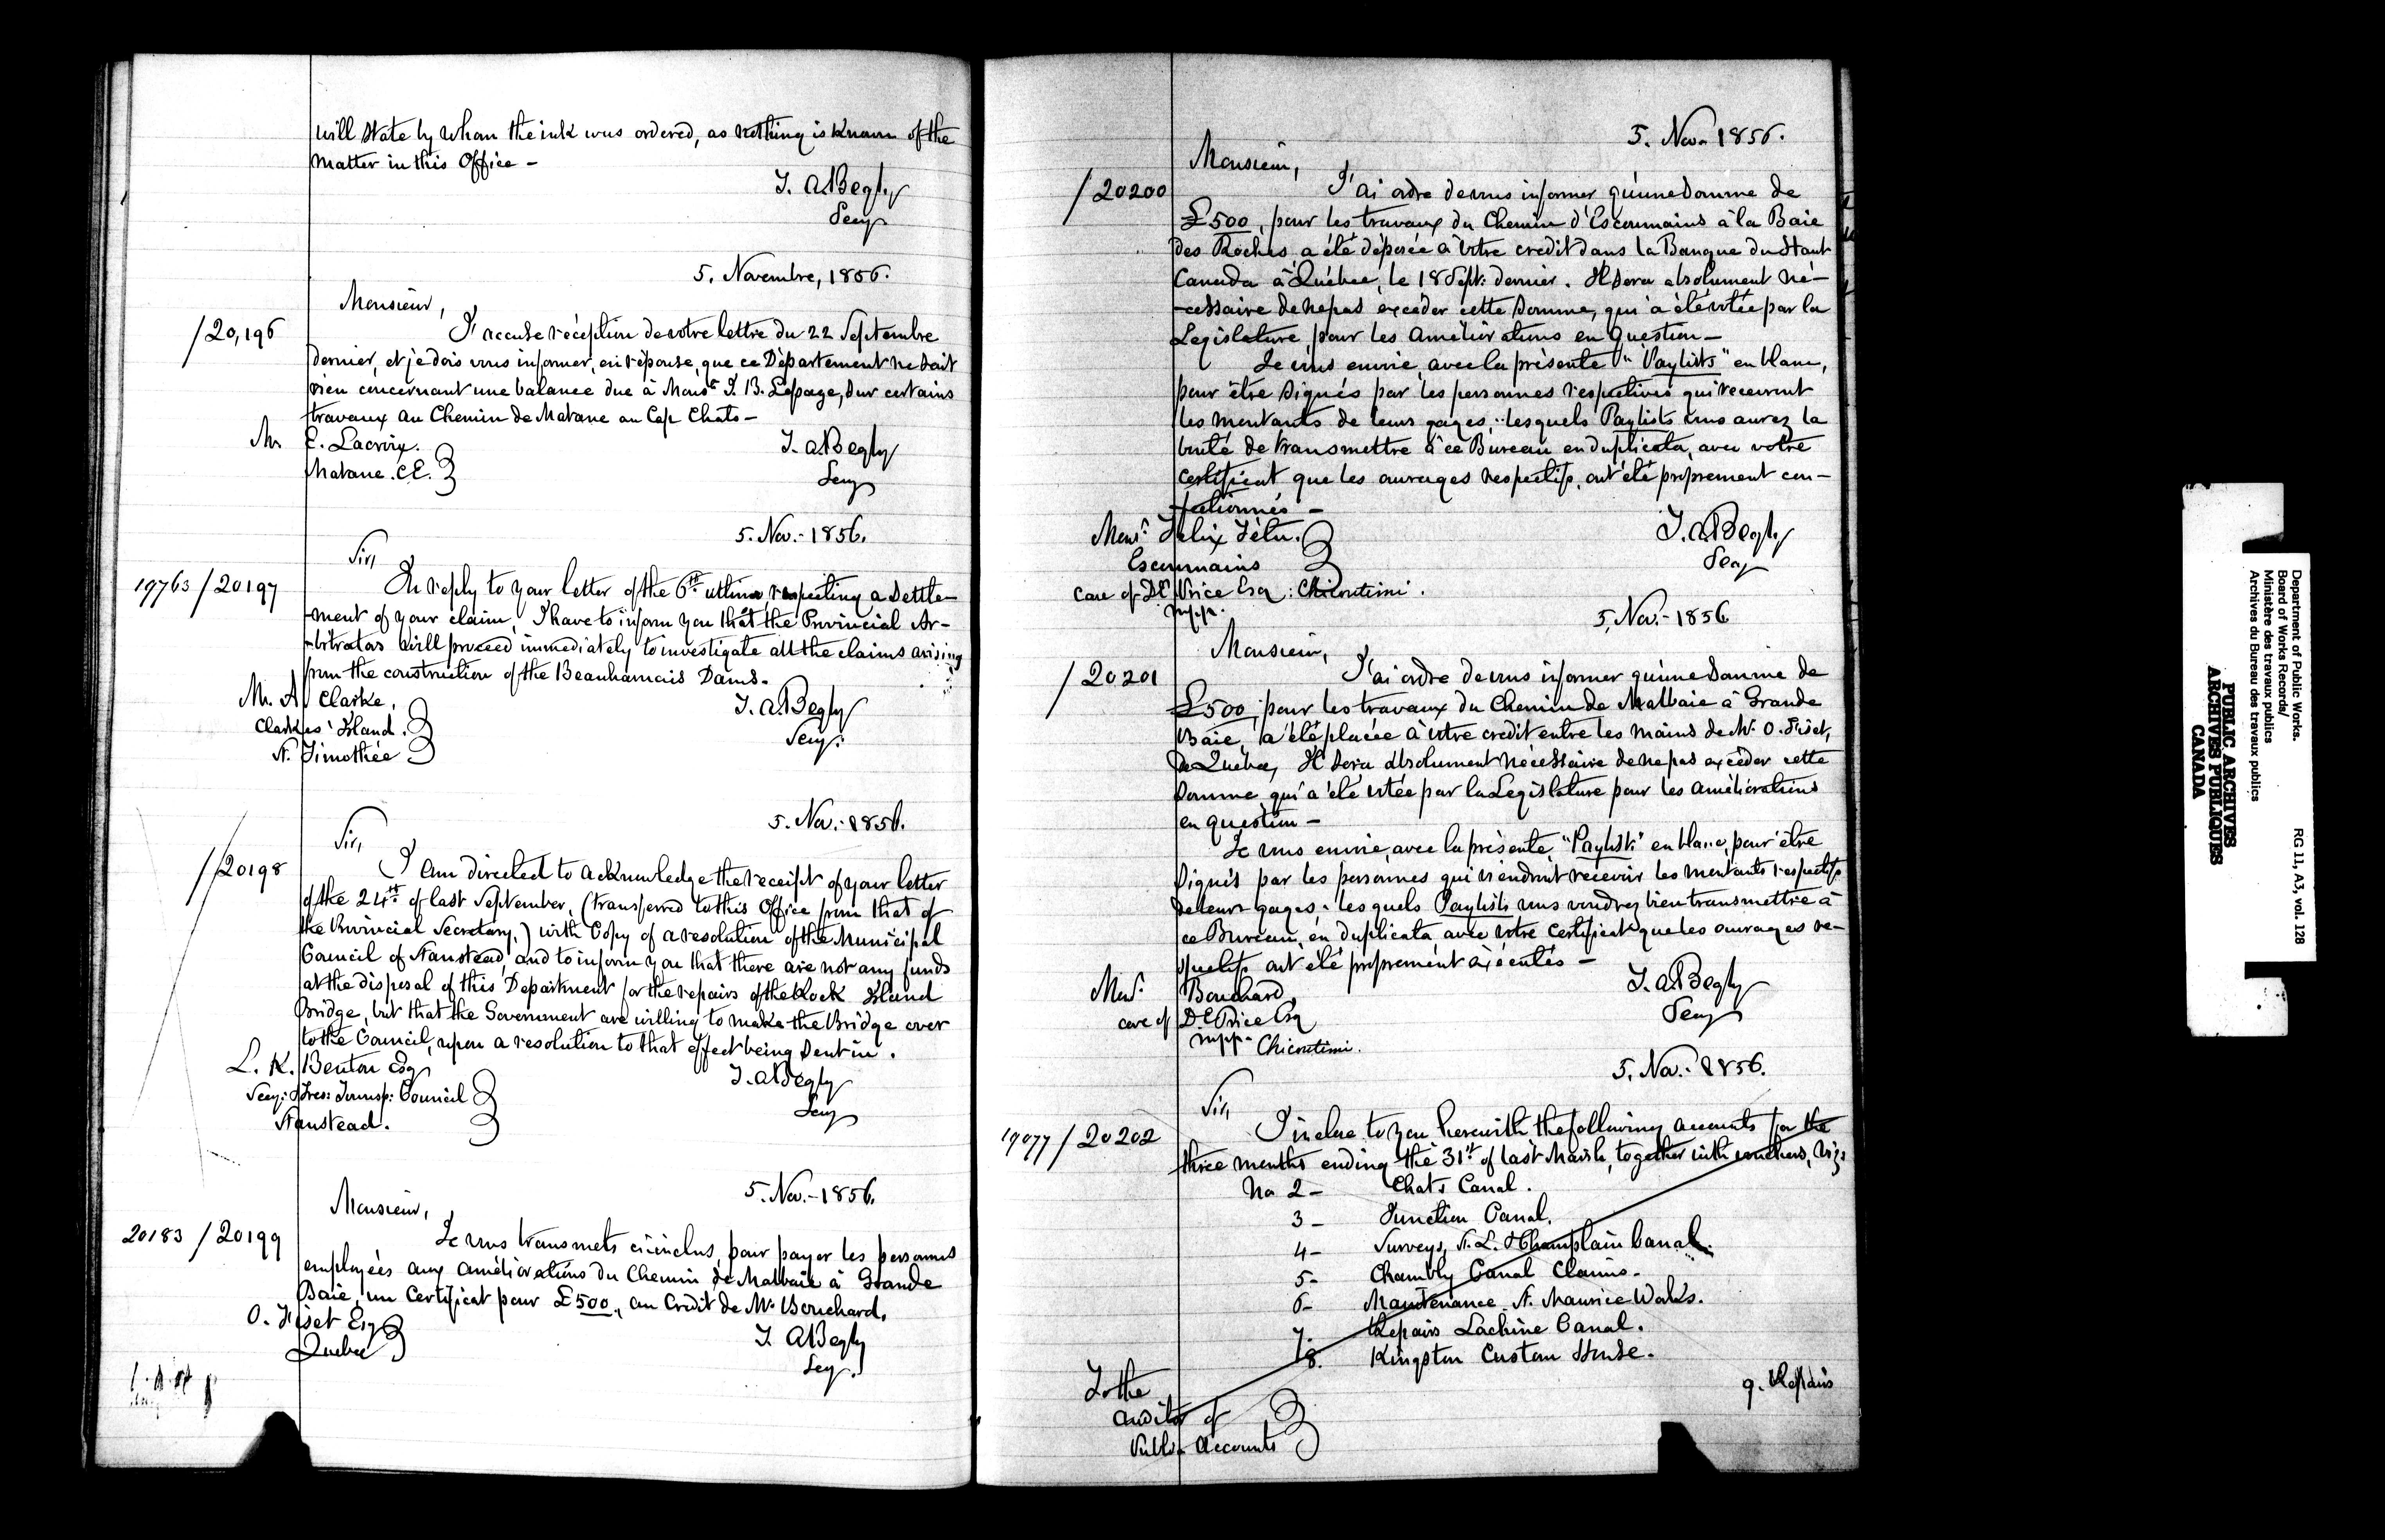 will state by whom the ink was ordered, as nothing is known of the
matter in this Office -
T. A. Begly
Secy
5. Novembre, 1856.
Monsieur,
/20,196
J'accuse réception de votre lettre du 22 Septembre
dernier, et je dois vous informer, en réponse, que ce Département ne doit
rien concernant une balance due à Monsr. J. B. Lepage, sur certains
travaux au Chemin de Matane au Cap Chats -
Mr E. Lacroix.
Matane. C.E.
T. A. Begly
Secy
5. Nov. - 1856.
Sir,
19763/20197
In reply to your letter of the 6th ultimo, respecting a settle-
-ment of your claim, I have to inform you that the Provincial Ar-
-bitrators will proceed immediately to investigate all the claims arising
from the construction of the Beauharnois Dams.
Mr. A. Clarke,
Clarkes' Island.
St. Timothée
T. A. Begly
Secy.
5. Nov. - 1856.
Sir,
/20198
I am directed to acknowledge the receipt of your letter
of the 24th of last September, (transferred to this Office from that of
the Provincial Secretary,) with Copy of a resolution of the Municipal
Council of Stanstead, and to inform you that there are not any funds
at the disposal of this Department for the repairs of the Rock Island
Bridge, but that the Government are willing to make the Bridge over
to the Council, upon a resolution to that effect being sent in.
L. K. Benton Esq
Secy: Tres: Townsp: Council
Stanstead.
T. A. Begly
Secy
5. Nov. - 1856.
Monsieur,
20183/20199
Je vous transmets ci-inclus, pour payer les personnes
employées aux améliorations du Chemin de Malbaie à Grande
Baie, un Certificat pour £500., au Crédit de Mr. Bouchard.
O. Fiset Esq
Quebec
T. A. Begly
Secy.
5. Nov. 1856.
Monsieur,
/20200
J'ai ordre de vous informer qu'une somme de
£500, pour les travaux du Chemin d'Escoumains à la Baie
des Roches, a été déposée à votre credit dans la Banque du Haut
Canada à Québec, le 18 Sept: dernier. Il sera absolument né-
-cessaire de ne pas excéder cette somme, qui a été votée par la
Legislature, pour les améliorations en question -
Je vous envoie, avec la présente "Paylists" en blanc,
pour être signés par les personnes respectives qui recevront
les montants de leurs gages, lesquels Paylists vous aurez la
bonté de transmettre à ce Bureau en duplicata, avec votre
certificat que les ouvrages respectifs, ont été proprement con-
-fectionnés -
Monsr. Felix Têtu.
Escoumains
care of D. E. Price Esq: Chicoutimi.
M.P.P.
T. A. Begly
Secy
5, Nov. - 1856
Monsieur,
/20201
J'ai ordre de vous informer qu'une somme de
£500, pour les travaux du Chemin de Malbaie à Grande
Baie, a été placée à votre credit entre les mains de Mr. O. Fiset,
de Québec, Il sera absolument nécessaire de ne pas excéder cette
somme, qui a été votée par la Legislature pour les améliorations
en question -
Je vous envoie, avec la présente, "Paylists" en blanc, pour être
signés par les personnes qui viendront recevoir les montants respectifs
de leurs gages: lesquels Paylists vous voudrez bien transmettre à
ce Bureau, en duplicata, avec votre certificat que les ouvrages re-
-spectifs ont été proprement exécutés -
Monsr. Bouchard,
care of D. E. Price Esq
M.P.P. Chicoutimi.
T. A. Begly
Secy
5. Nov. - 1856.
Sir,
19077/20202
I inclose to you herewith the following accounts for the
three months ending the 31st of last March, together with vouchers, viz:
No 2 - Chats Canal.
3 - Junction Canal.
4 - Surveys, St. L. & Champlain Canal.
5 - Chambly Canal Claims.
6 - Maintenance St. Maurice Works.
7. Repairs Lachine Canal.
8. Kingston Custom House.
9. Repairs
To the
Auditor of
Public Accounts
Department of Public Works. RG 11, A3, vol. 128
Board of Works Records/
Ministère des travaux publics
Archives du Bureau des travaux publics
PUBLIC ARCHIVES
ARCHIVES PUBLIQUES
CANADA